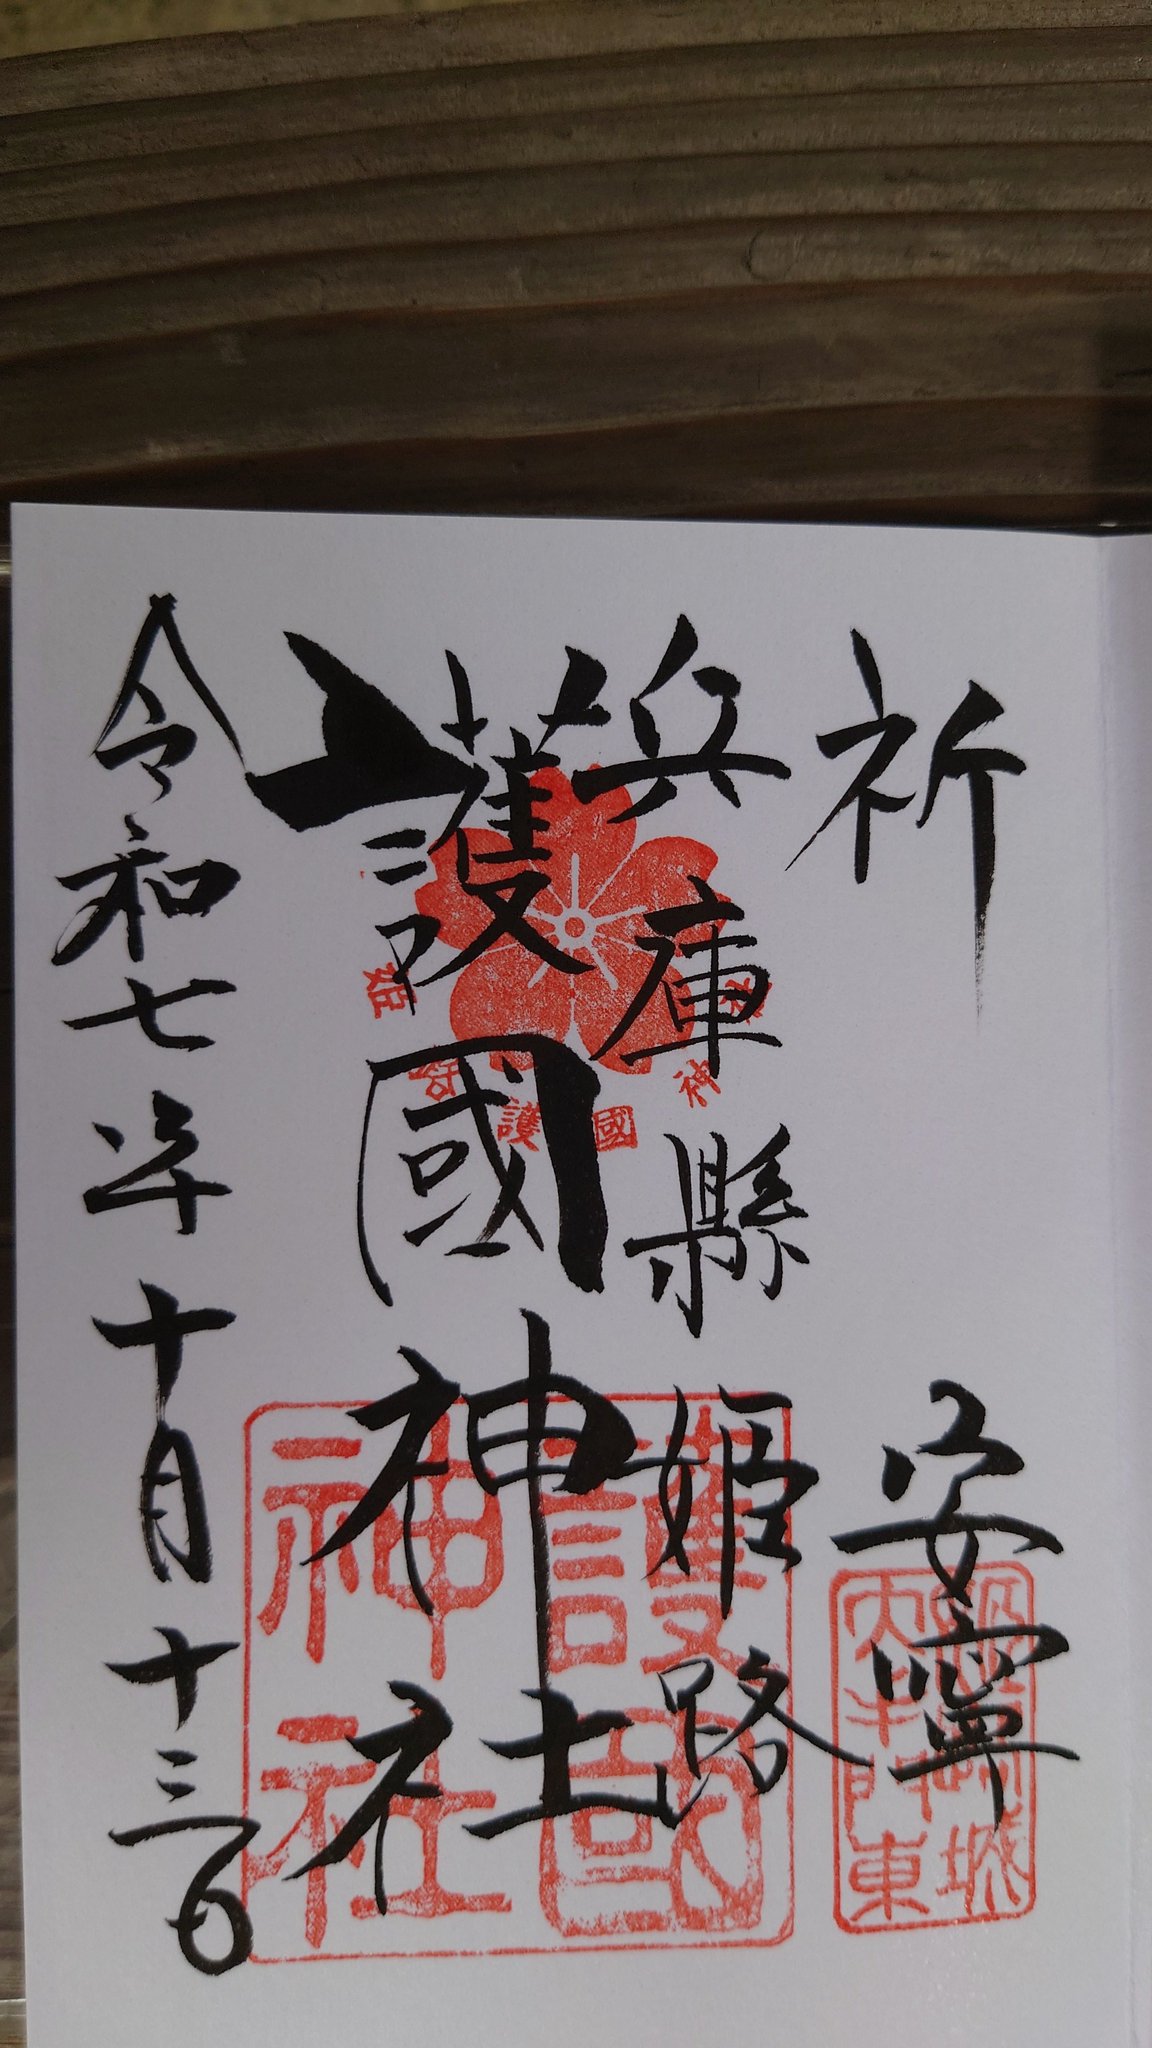 祈 安寧
兵庫縣姫路
護國神社
令和七年十月十三日
姫 路 護 國 神 社
護國
神社
姫路城
大手門東